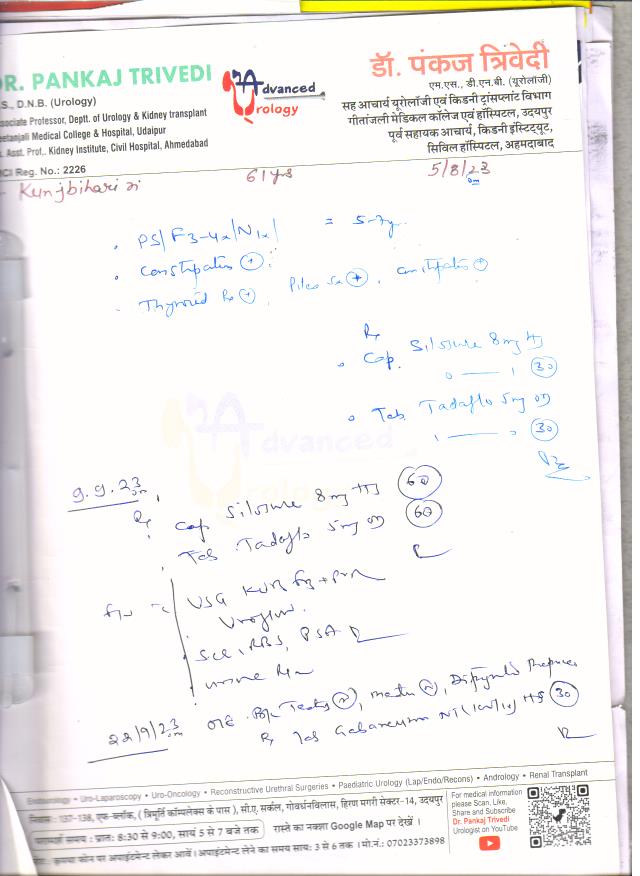 DR. PANKAJ TRIVEDI
.S., D.N.B. (Urology)
ssociate Professor, Deptt. of Urology & Kidney transplant
eetanjali Medical College & Hospital, Udaipur
. Asst. Prof.. Kidney Institute, Civil Hospital, Ahmedabad
CI Reg. No.: 2226
Advanced
Urology
डॉ. पंकज त्रिवेदी
एम.एस., डी.एन.बी. (यूरोलॉजी)
सह आचार्य यूरोलॉजी एवं किडनी ट्रांसप्लांट विभाग
गीतांजली मेडिकल कॉलेज एवं हॉस्पिटल, उदयपुर
पूर्व सहायक आचार्य, किडनी इंस्टिट्यूट,
सिविल हॉस्पिटल, अहमदाबाद
Kunjbihari ji 61 yrs 5/8/23
. PS/F3-4x/N1x/ = 5-7y.
. Constipation +
. Thyroid Rx +, Piles Sx +, Constipation +
Rx
. Cap. Silosure 8mg HS
0 — 1 30
. Tab. Tadaflo 5mg OD
1 — 0 30
Advanced
Urology
9.9.23
Rx
. Cap Silosure 8mg HS 60
. Tab. Tadaflo 5mg OD 60
USG KUB + PVR
Uroflow.
. S.Cr, RBS, PSA
. Urine R/M
22/9/23 O/E B/L Testes N, N,
Rx Tab NT HS 30
Endourology • Uro-Laparoscopy • Uro-Oncology • Reconstructive Urethral Surgeries • Paediatric Urology (Lap/Endo/Recons) • Andrology • Renal Transplant
निवास : 137-138, एफ-ब्लॉक, ( त्रिमूर्ति कॉम्पलेक्स के पास ), सी.ए. सर्कल, गोवर्धनविलास, हिरण मगरी सेक्टर-14, उदयपुर
परामर्श समय : प्रातः 8:30 से 9:00, सायं 5 से 7 बजे तक रास्ते का नक्शा Google Map पर देखें ।
नोट: कृपया फोन पर अपाइंटमेन्ट लेकर आवें । अपाइंटमेन्ट लेने का समय सायः 3 से 6 तक । मो.नं.: 07023373898
For medical information
please Scan, Like,
Share and Subscribe
Dr. Pankaj Trivedi
Urologist on YouTube